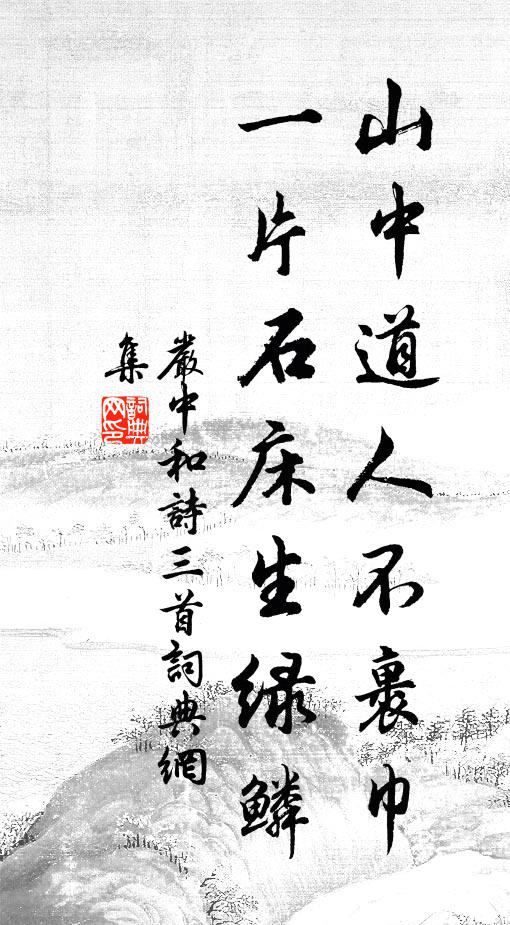 山中道人不裹巾
一片石床生绿鳞
嚴中和詩三首詞典網
集
詞典網印